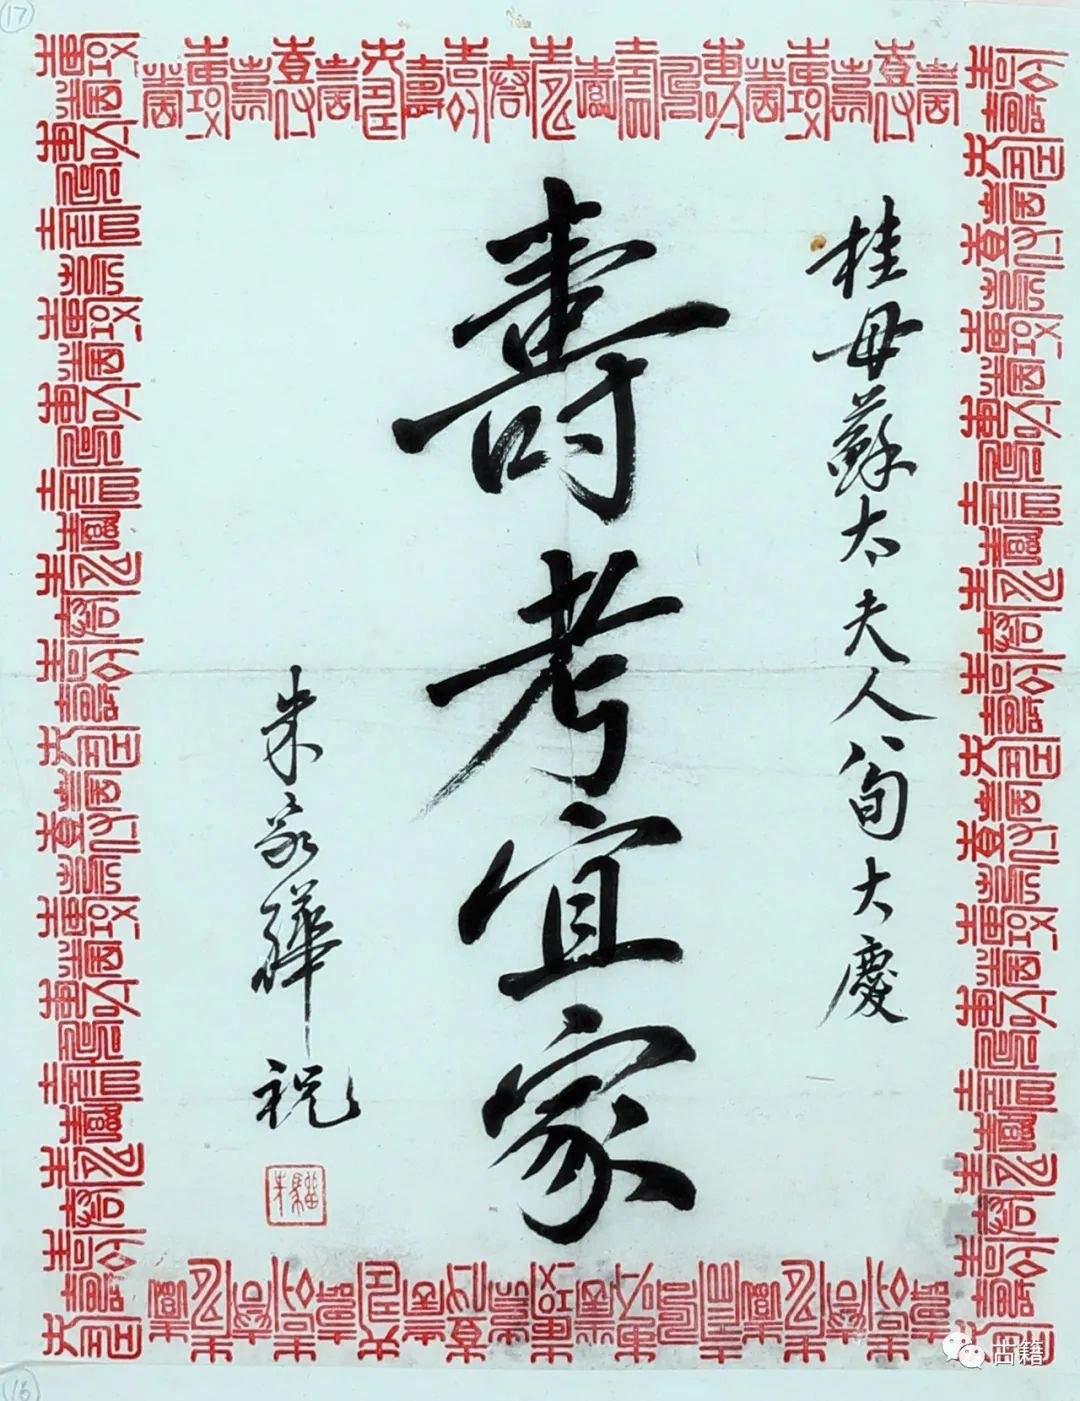 17
桂母蘇太夫人八旬大慶
壽考宜家
朱家驊祝
古籍